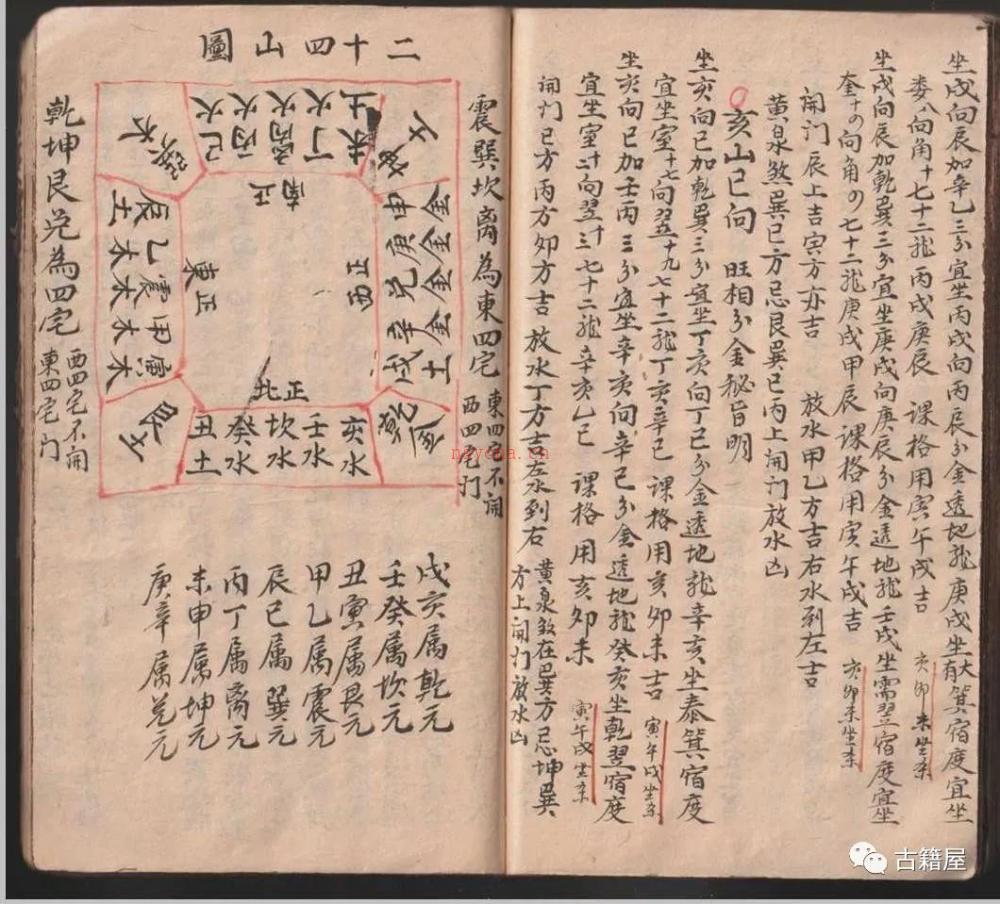 坐戌向辰加辛乙三分宜坐丙戌向丙辰分金透地龙庚戌坐大有箕宿度宜坐
娄八向角十七十二龙丙戌庚辰 课格用寅午戌吉 亥卯未坐杀
坐戌向辰加乾巽三分宜坐庚戌向庚辰分金透地龙壬戌坐需翌宿度宜坐
奎十の向角の七十二龙庚戌甲辰课格用寅午戌吉 亥卯未坐杀
開门辰上吉寅方亦吉 放水甲乙方吉右水到左吉
黄泉煞巽巳方忌艮巽巳丙上開门放水凶
亥山巳向 旺相分金秘旨明
坐亥向巳加乾巽三分宜坐丁亥向丁巳分金透地龙辛亥坐泰箕宿度
宜坐室十七向翌十九七十二龙丁亥辛巳 课格用亥卯未吉 寅午戌坐杀
坐亥向巳加壬丙三分宜坐辛亥向辛巳分金透地龙癸亥坐乾翌宿度
七十二龙辛亥乙巳 课格用亥卯未 寅午戌坐杀
開门巳方丙方卯方吉 放水丁方吉左水到右
黄泉煞在巽方忌坤巽
方上開门放水凶
二十四山圖
震巽坎离為東四宅
東四宅不開
西四宅门
巳火 丙火 离火 丁火 未土
正南
申金 庚金 兑金 辛金 戌土
正西
乾金
亥水 壬水 坎水 癸水 丑土
正北
艮土
寅木 甲木 震木 乙木 辰土
正東
巽木
乾坤艮兑為四宅
西四宅不開
東四宅门
戌亥属乾元
壬癸属坎元
丑寅属艮元
甲乙属震元
辰巳属巽元
丙丁属离元
未申属坤元
庚辛属兑元
古籍屋